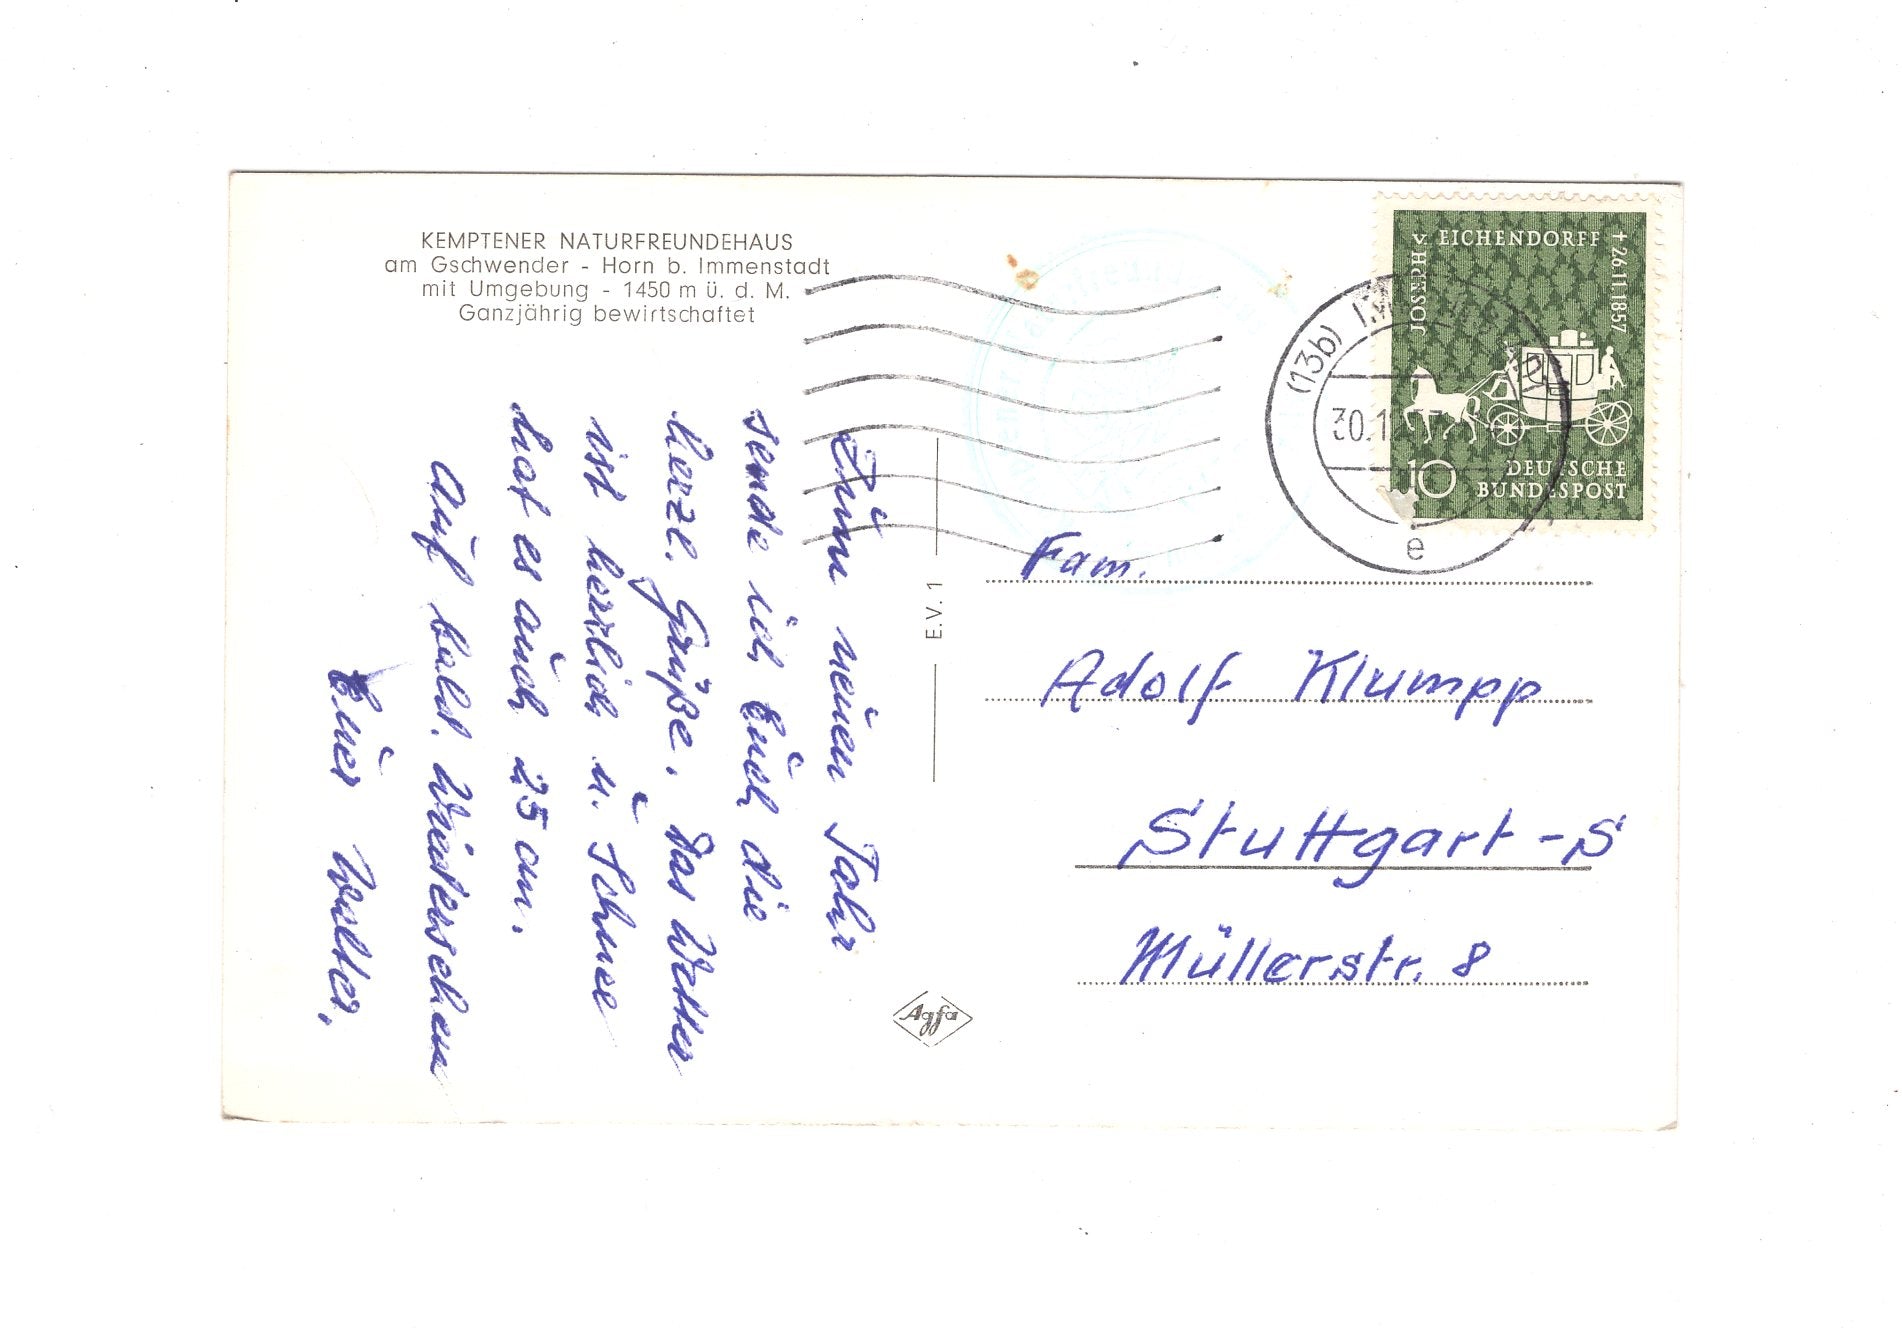 KEMPTENER NATURFREUNDEHAUS
am Gschwender - Horn b. Immenstadt
mit Umgebung - 1450 m ü. d. M.
Ganzjährig bewirtschaftet
Zum neuen Jahr
sende ich Euch die
herzl. Grüße. Das Wetter
ist herrlich u. Schnee
hat es auch 25 cm.
Auf bald. Wiedersehen
Euer Walter.
E.V. 1
Agfa
JOSEPH v. EICHENDORFF † 26.11.1857
10 DEUTSCHE
BUNDESPOST
(13b)
e
Fam.
Adolf Klumpp
Stuttgart-S
Müllerstr. 8